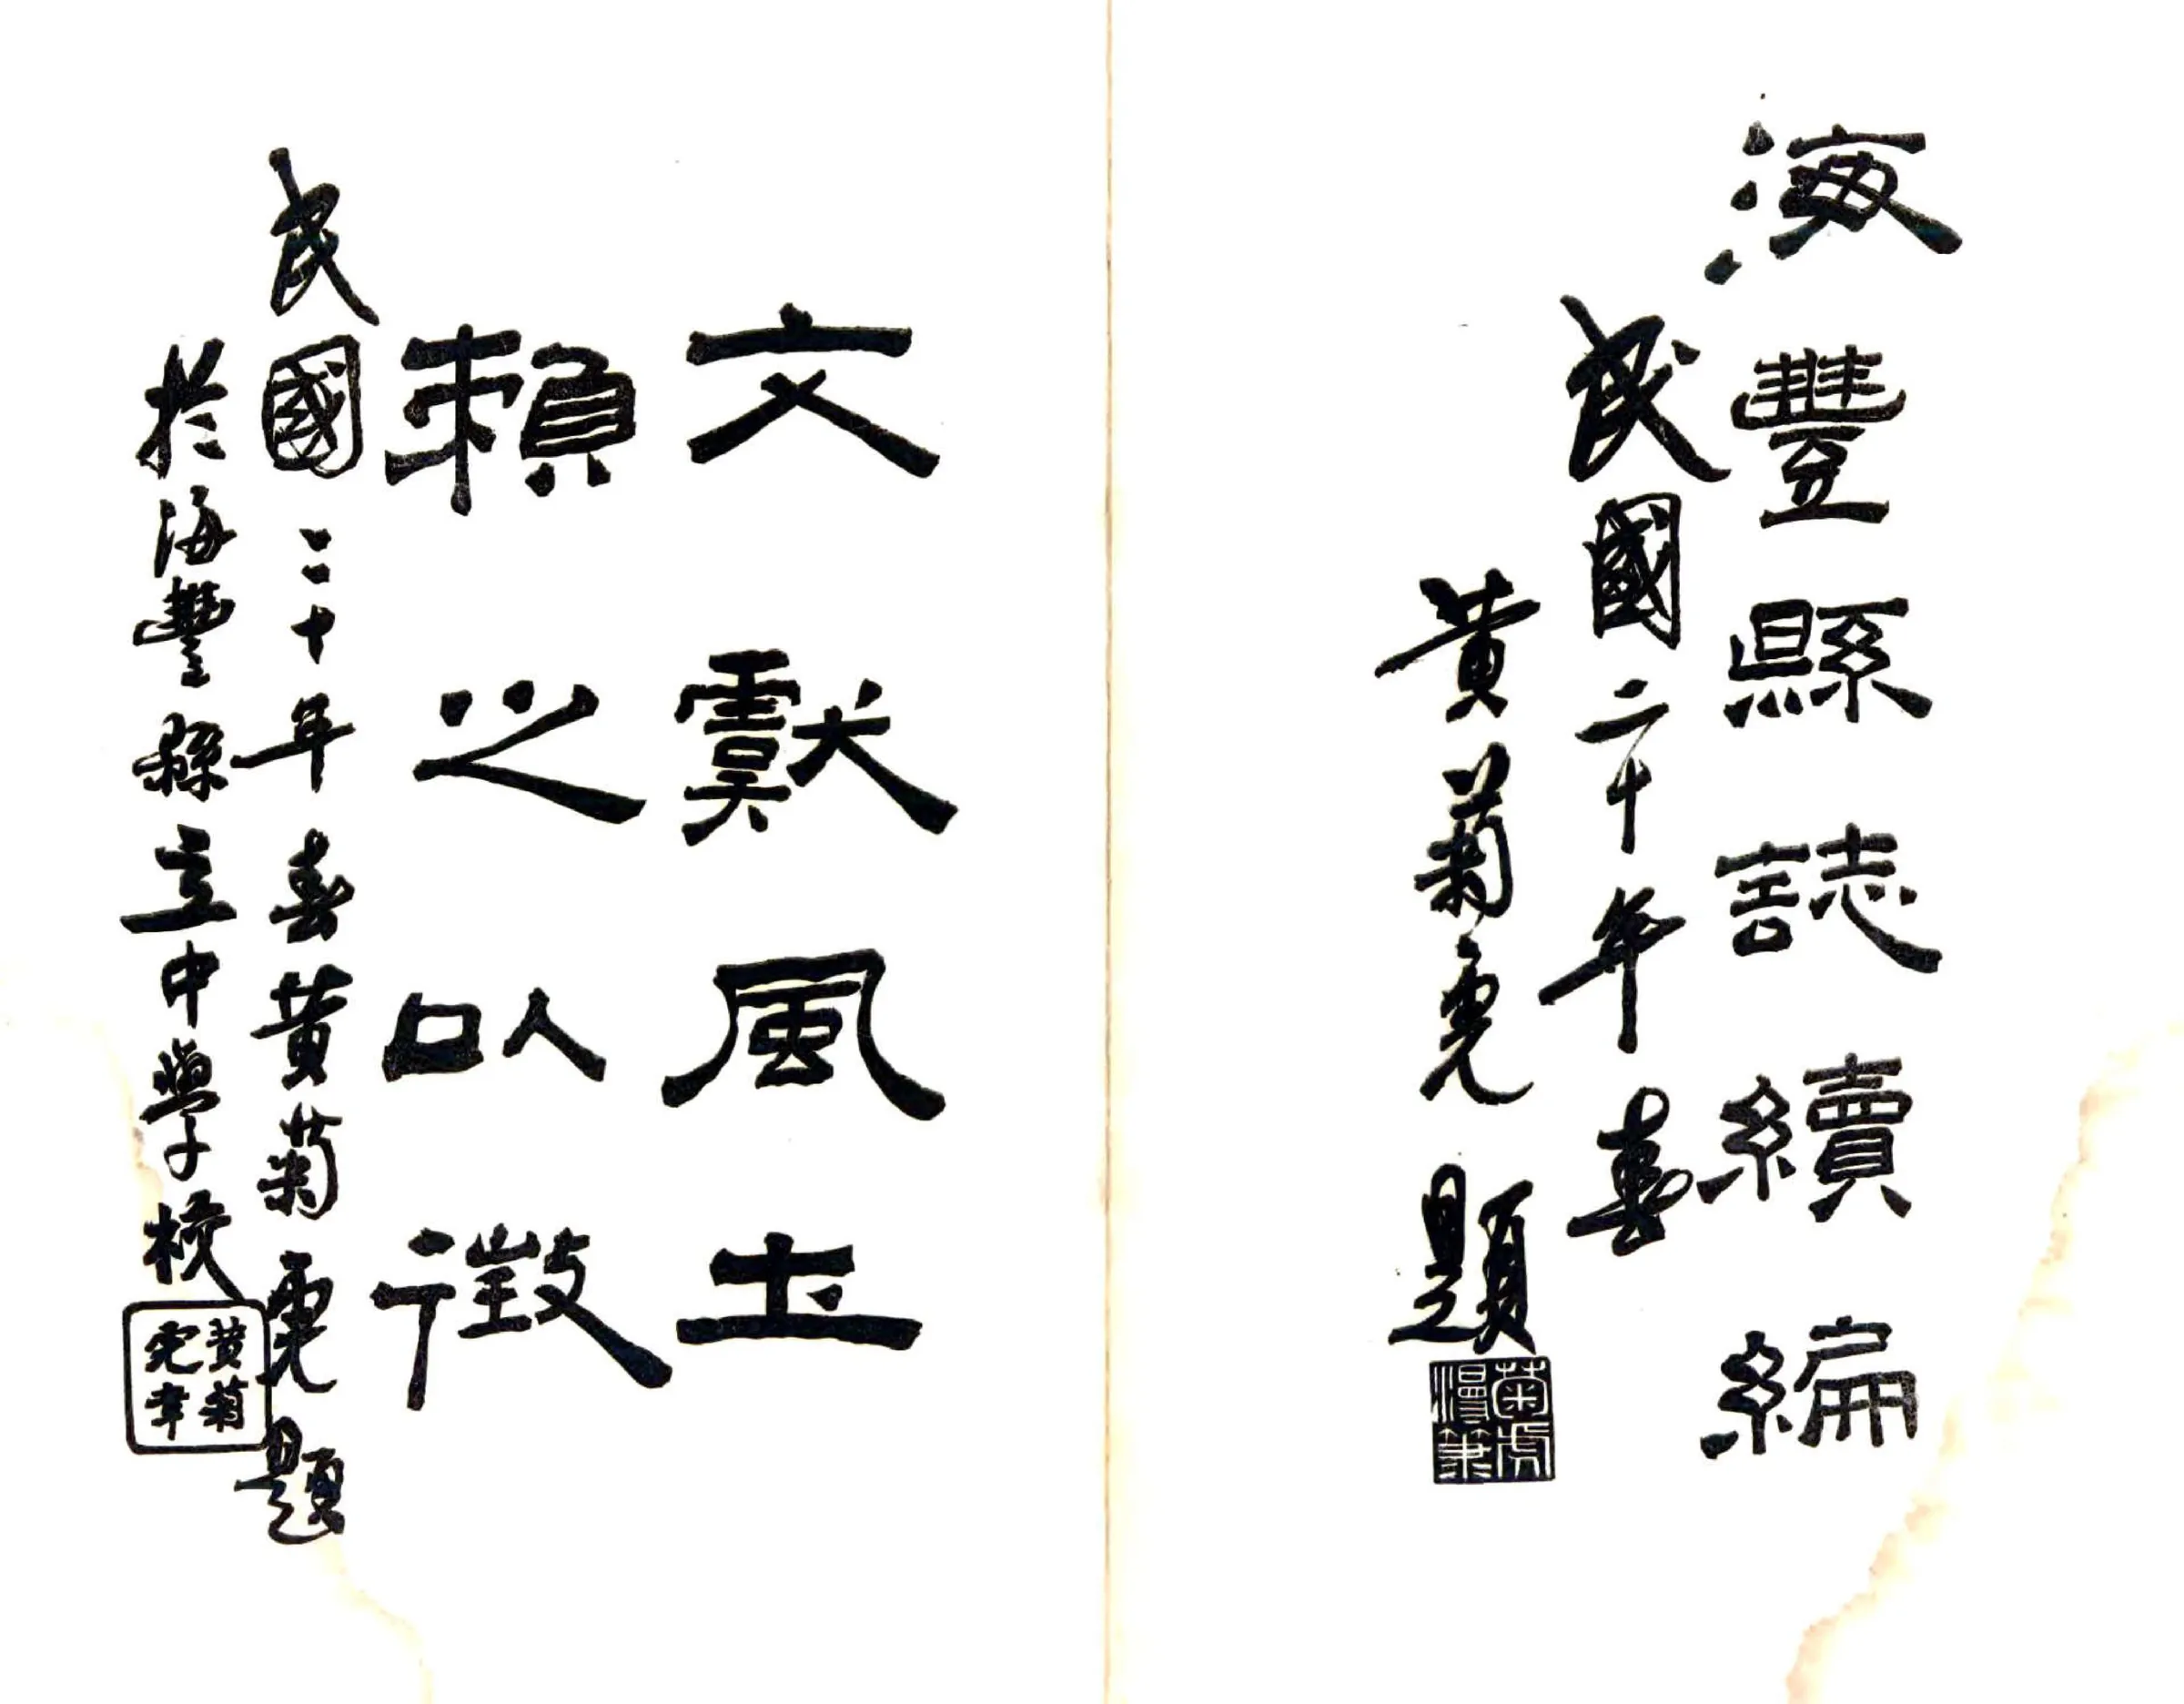 海豐縣誌續編
民國二十年春
黃菊虎題
菊虎漫筆
文獻風土
賴之以徵
民國二十年春黃菊虎題
於海豐縣立中學校
黃菊虎章